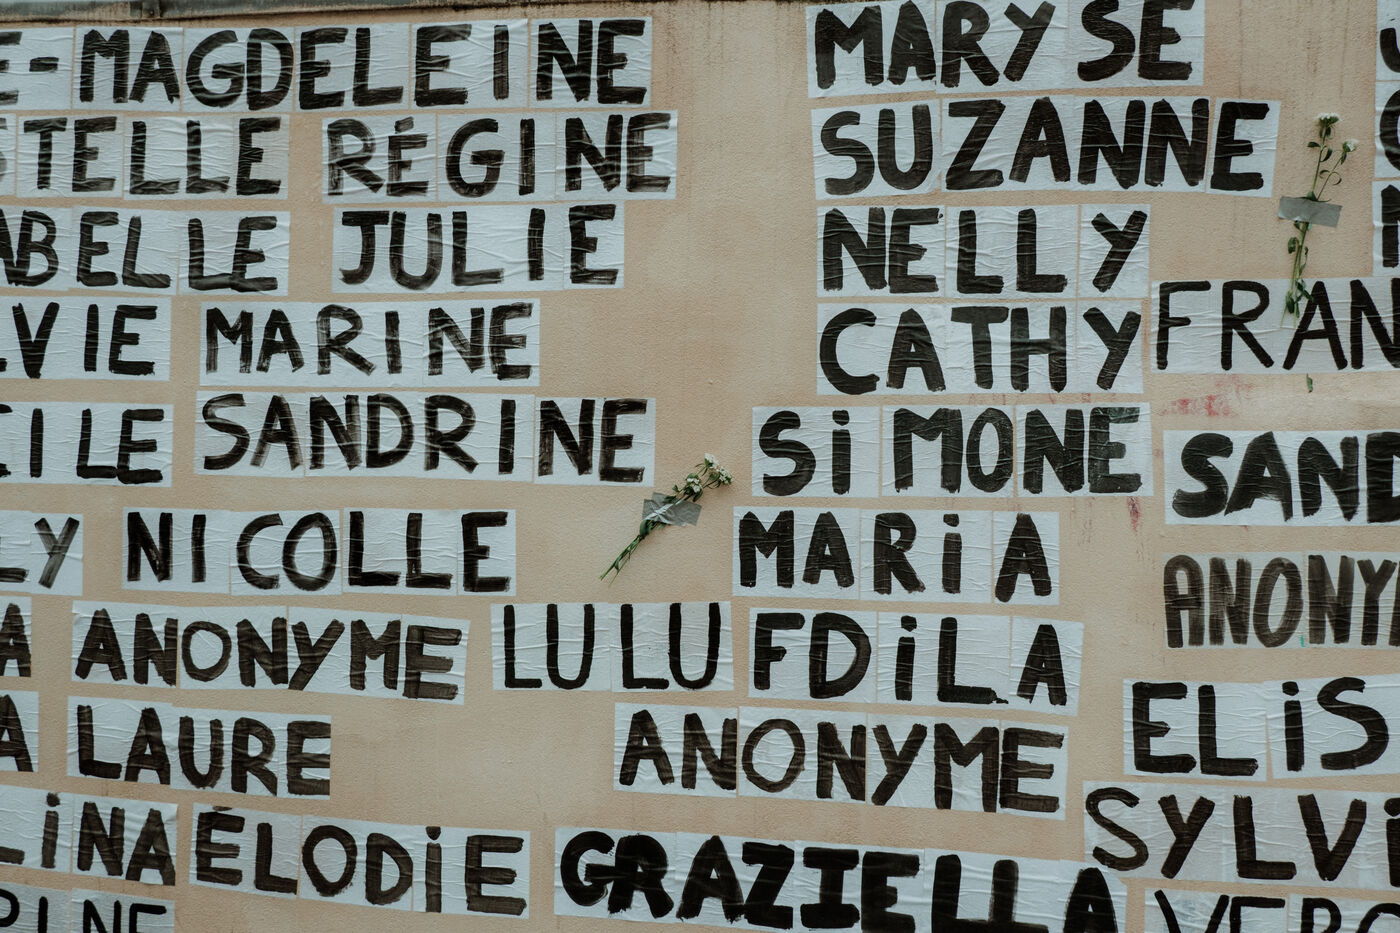 E-MAGDELEINE
STELLE RÉGINE
ABELLE JULIE
LVIE MARINE
CILE SANDRINE
LY NICOLLE
A ANONYME LULU
A LAURE
LiNA ELODiE
RINE
MARYSE
SUZANNE
NELLY
CATHY FRAN
SiMONE SAND
MARiA ANONY
FDiLA
ANONYME ELiS
GRAZIELLA SYLVi
VERO